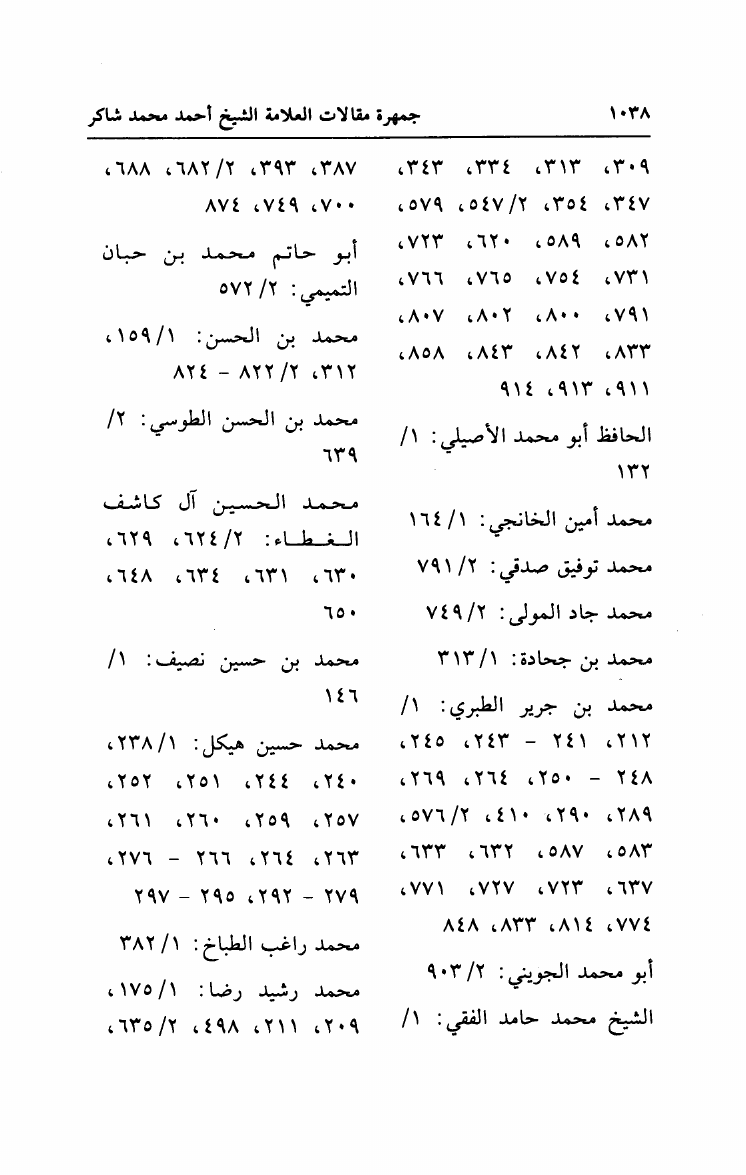 ١٠٣٨
جمهرة مقالات العلامة الشيخ أحمد محمد شاكر
٣٠٩، ٣١٣، ٣٣٤، ٣٤٣،
٣٤٧، ٣٥٤، ٢/ ٥٤٧، ٥٧٩،
٥٨٢، ٥٨٩، ٦٢٠، ٧٢٣،
٧٣١، ٧٥٤، ٧٦٥، ٧٦٦،
٧٩١، ٨٠٠، ٨٠٢، ٨٠٧،
٨٣٣، ٨٤٢، ٨٤٣، ٨٥٨،
٩١١، ٩١٣، ٩١٤
الحافظ أبو محمد الأصيلي: ١/
١٣٢
محمد أمين الخانجي: ١/ ١٦٤
محمد توفيق صدقي: ٢/ ٧٩١
محمد جاد المولى: ٢/ ٧٤٩
محمد بن جحادة: ١/ ٣١٣
محمد بن جرير الطبري: ١/
٢١٢، ٢٤١ - ٢٤٣، ٢٤٥،
٢٤٨ - ٢٥٠، ٢٦٤، ٢٦٩،
٢٨٩، ٢٩٠، ٤١٠، ٢/ ٥٧٦،
٥٨٣، ٥٨٧، ٦٣٢، ٦٣٣،
٦٣٧، ٧٢٣، ٧٢٧، ٧٧١،
٧٧٤، ٨١٤، ٨٣٣، ٨٤٨
أبو محمد الجويني: ٢/ ٩٠٣
الشيخ محمد حامد الفقي: ١/
٣٨٧، ٣٩٣، ٢/ ٦٨٢، ٦٨٨،
٧٠٠، ٧٤٩، ٨٧٤
أبو حاتم محمد بن حبان
التميمي: ٢/ ٥٧٢
محمد بن الحسن: ١/ ١٥٩،
٣١٢، ٢/ ٨٢٢ - ٨٢٤
محمد بن الحسن الطوسي: ٢/
٦٣٩
محمد الحسين آل كاشف
الغطاء: ٢/ ٦٢٤، ٦٢٩،
٦٣٠، ٦٣١، ٦٣٤، ٦٤٨،
٦٥٠
محمد بن حسين نصيف: ١/
١٤٦
محمد حسين هيكل: ١/ ٢٣٨،
٢٤٠، ٢٤٤، ٢٥١، ٢٥٢،
٢٥٧، ٢٥٩، ٢٦٠، ٢٦١،
٢٦٣، ٢٦٤، ٢٦٦ - ٢٧٦،
٢٧٩ - ٢٩٢، ٢٩٥ - ٢٩٧
محمد راغب الطباخ: ١/ ٣٨٢
محمد رشيد رضا: ١/ ١٧٥،
٢٠٩، ٢١١، ٤٩٨، ٢/ ٦٣٥،